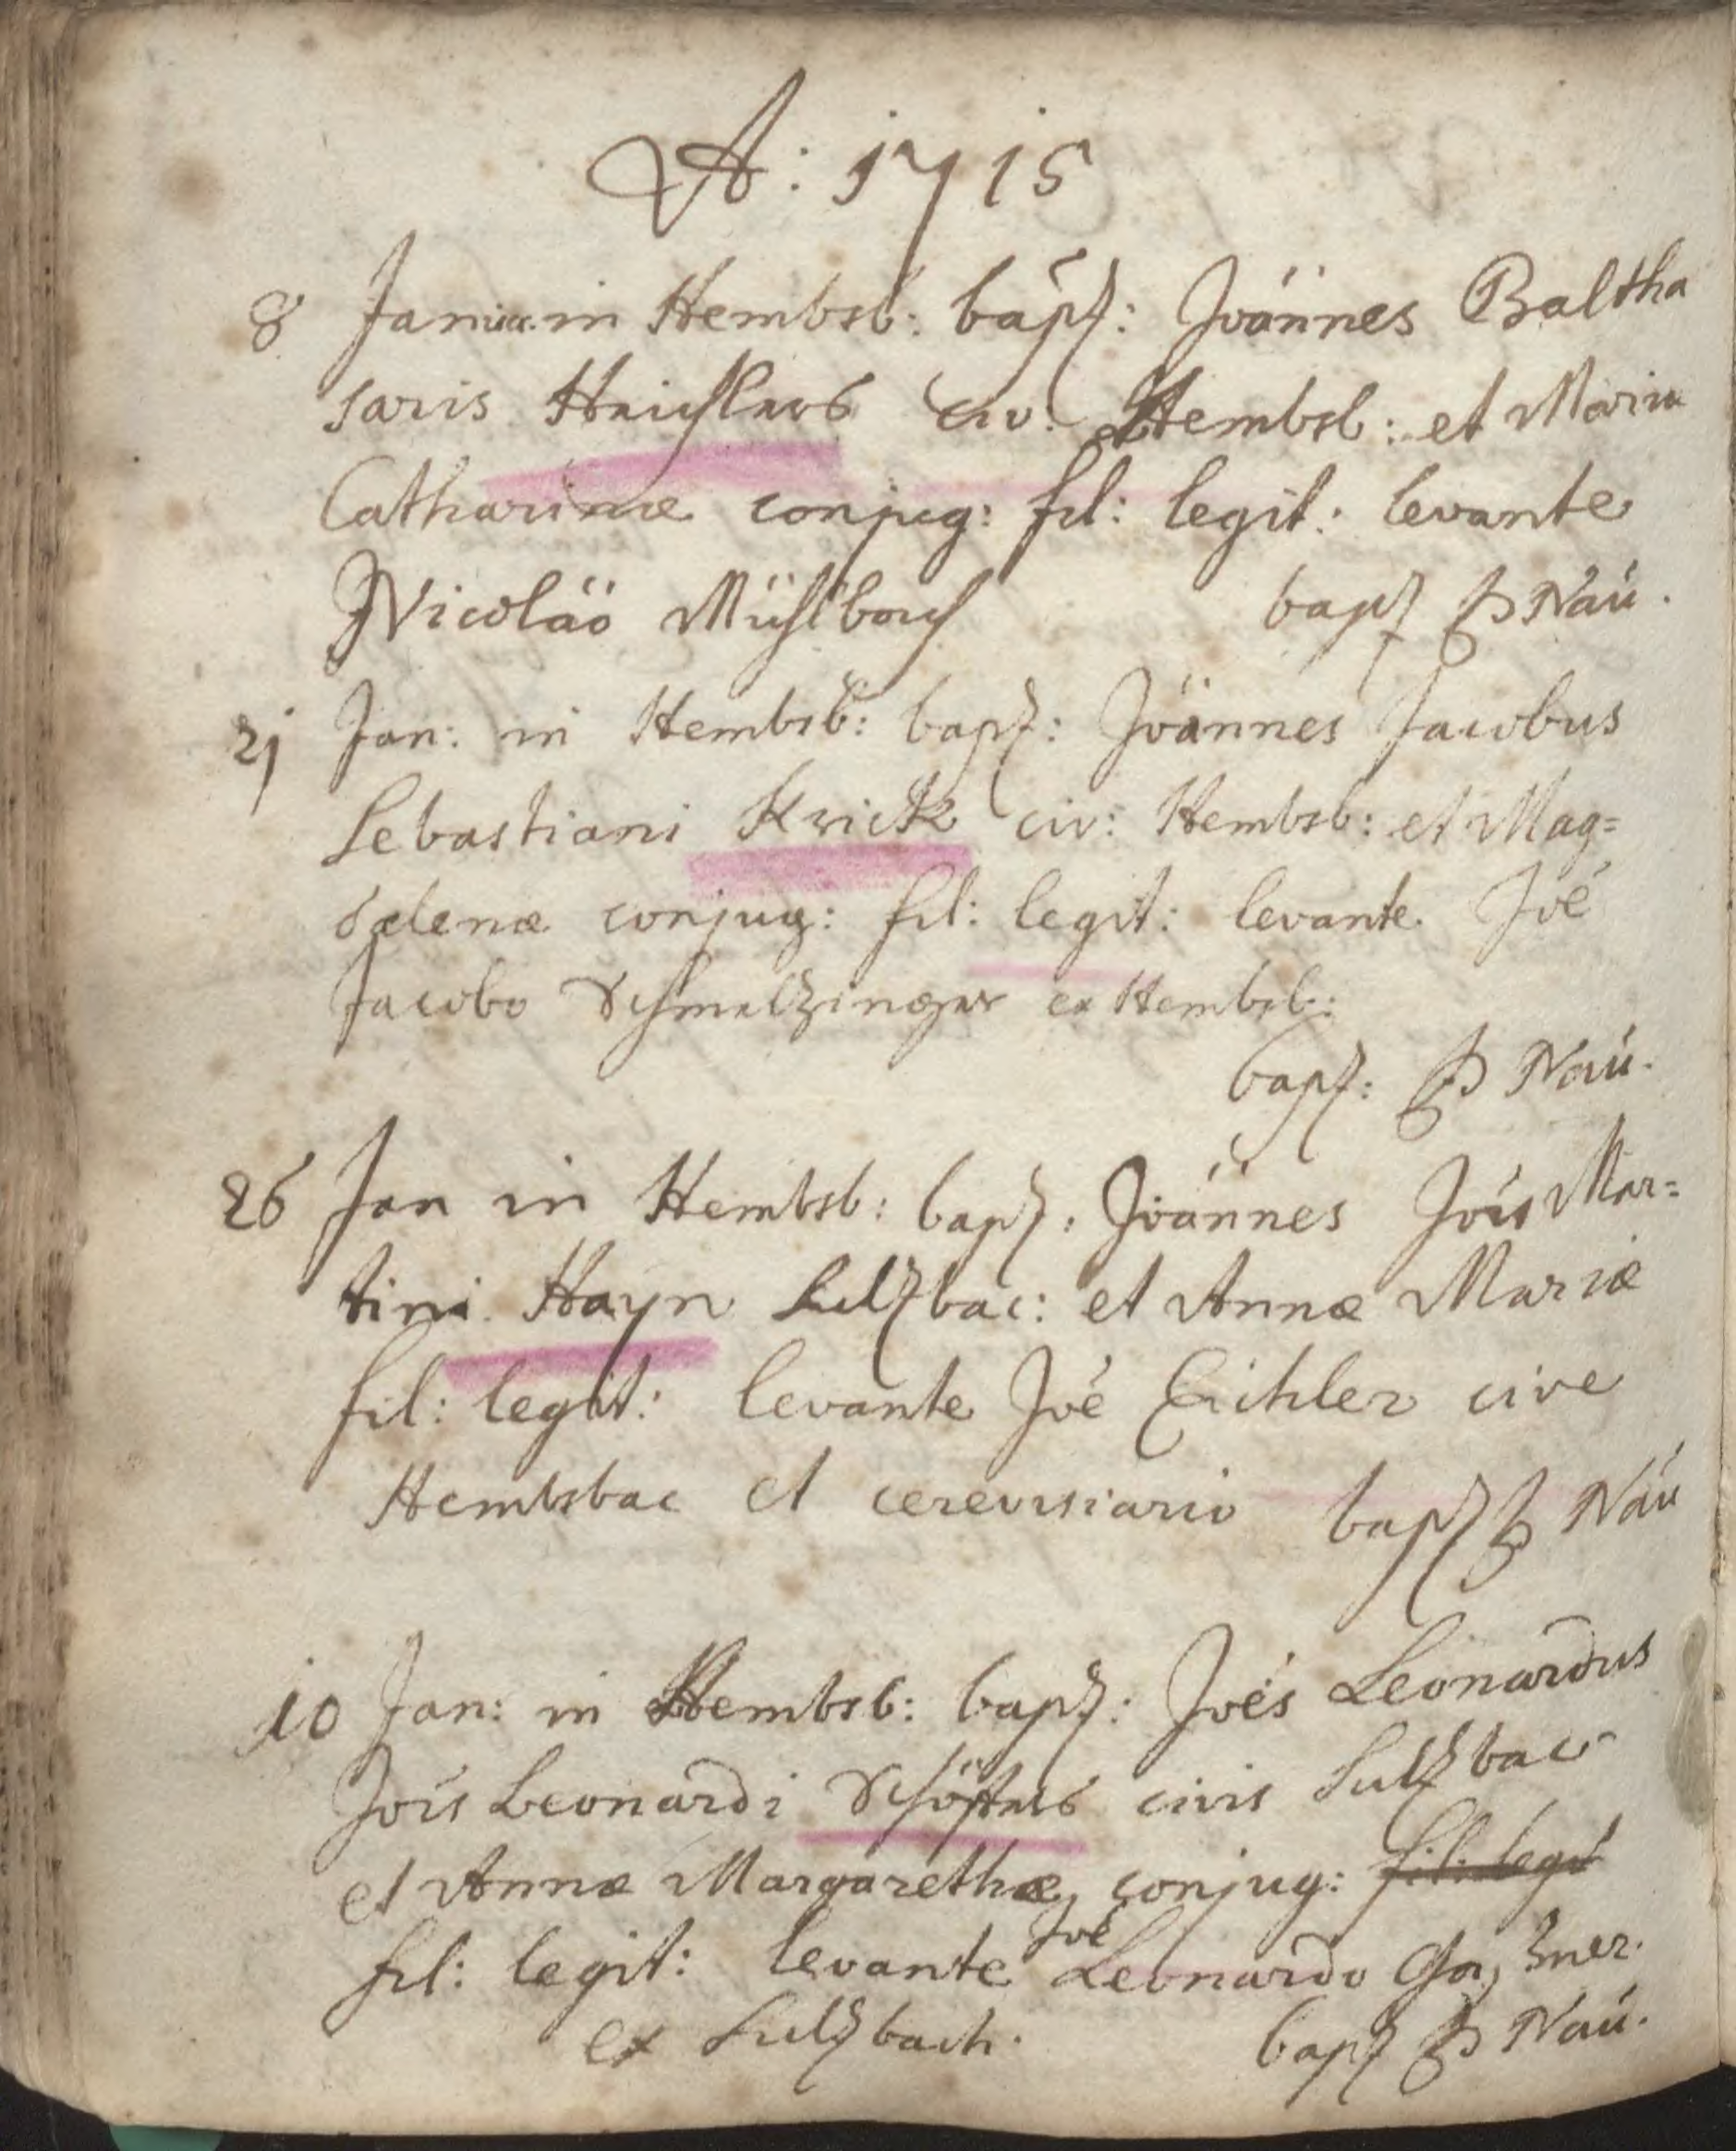 A: 1715
8 Januar: in Hembsb: bapt: Joannes Baltha
saris civ: Hembsb: et Mariæ
Catharinæ conjug: fil: legit: levante
Nicolao Mühlbach bapt P Nau.
21 Jan: in Hembsb: bapt: Joannes Jacobus
Sebastiani Krick civ: Hembsb: et Mag=
dalenæ conjug: fil: legit: levante Joe
Jacobo Schmelzinger ex Hembsb:
bapt: P Nau.
26 Jan in Hembsb: bapt: Joannes Jois Mar=
tini Hayn Sulzbac: et Annæ Mariæ
fil: legit: levante Joe Eichler cive
Hembsbac et cerevisiario bapt P Nau
10 Jan: in Hembsb: bapt: Joes Leonardus
Jois Leonardi civis Sulzbac
et Annæ Margarethæ conjug: fil: legit
fil: legit: levante Joe Leonardo
ex Sulzbach. bapt P Nau.